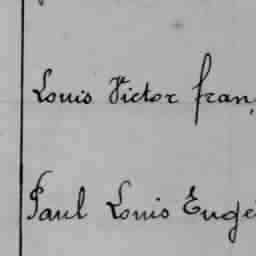 Louis Victor fran
Paul Louis Euge